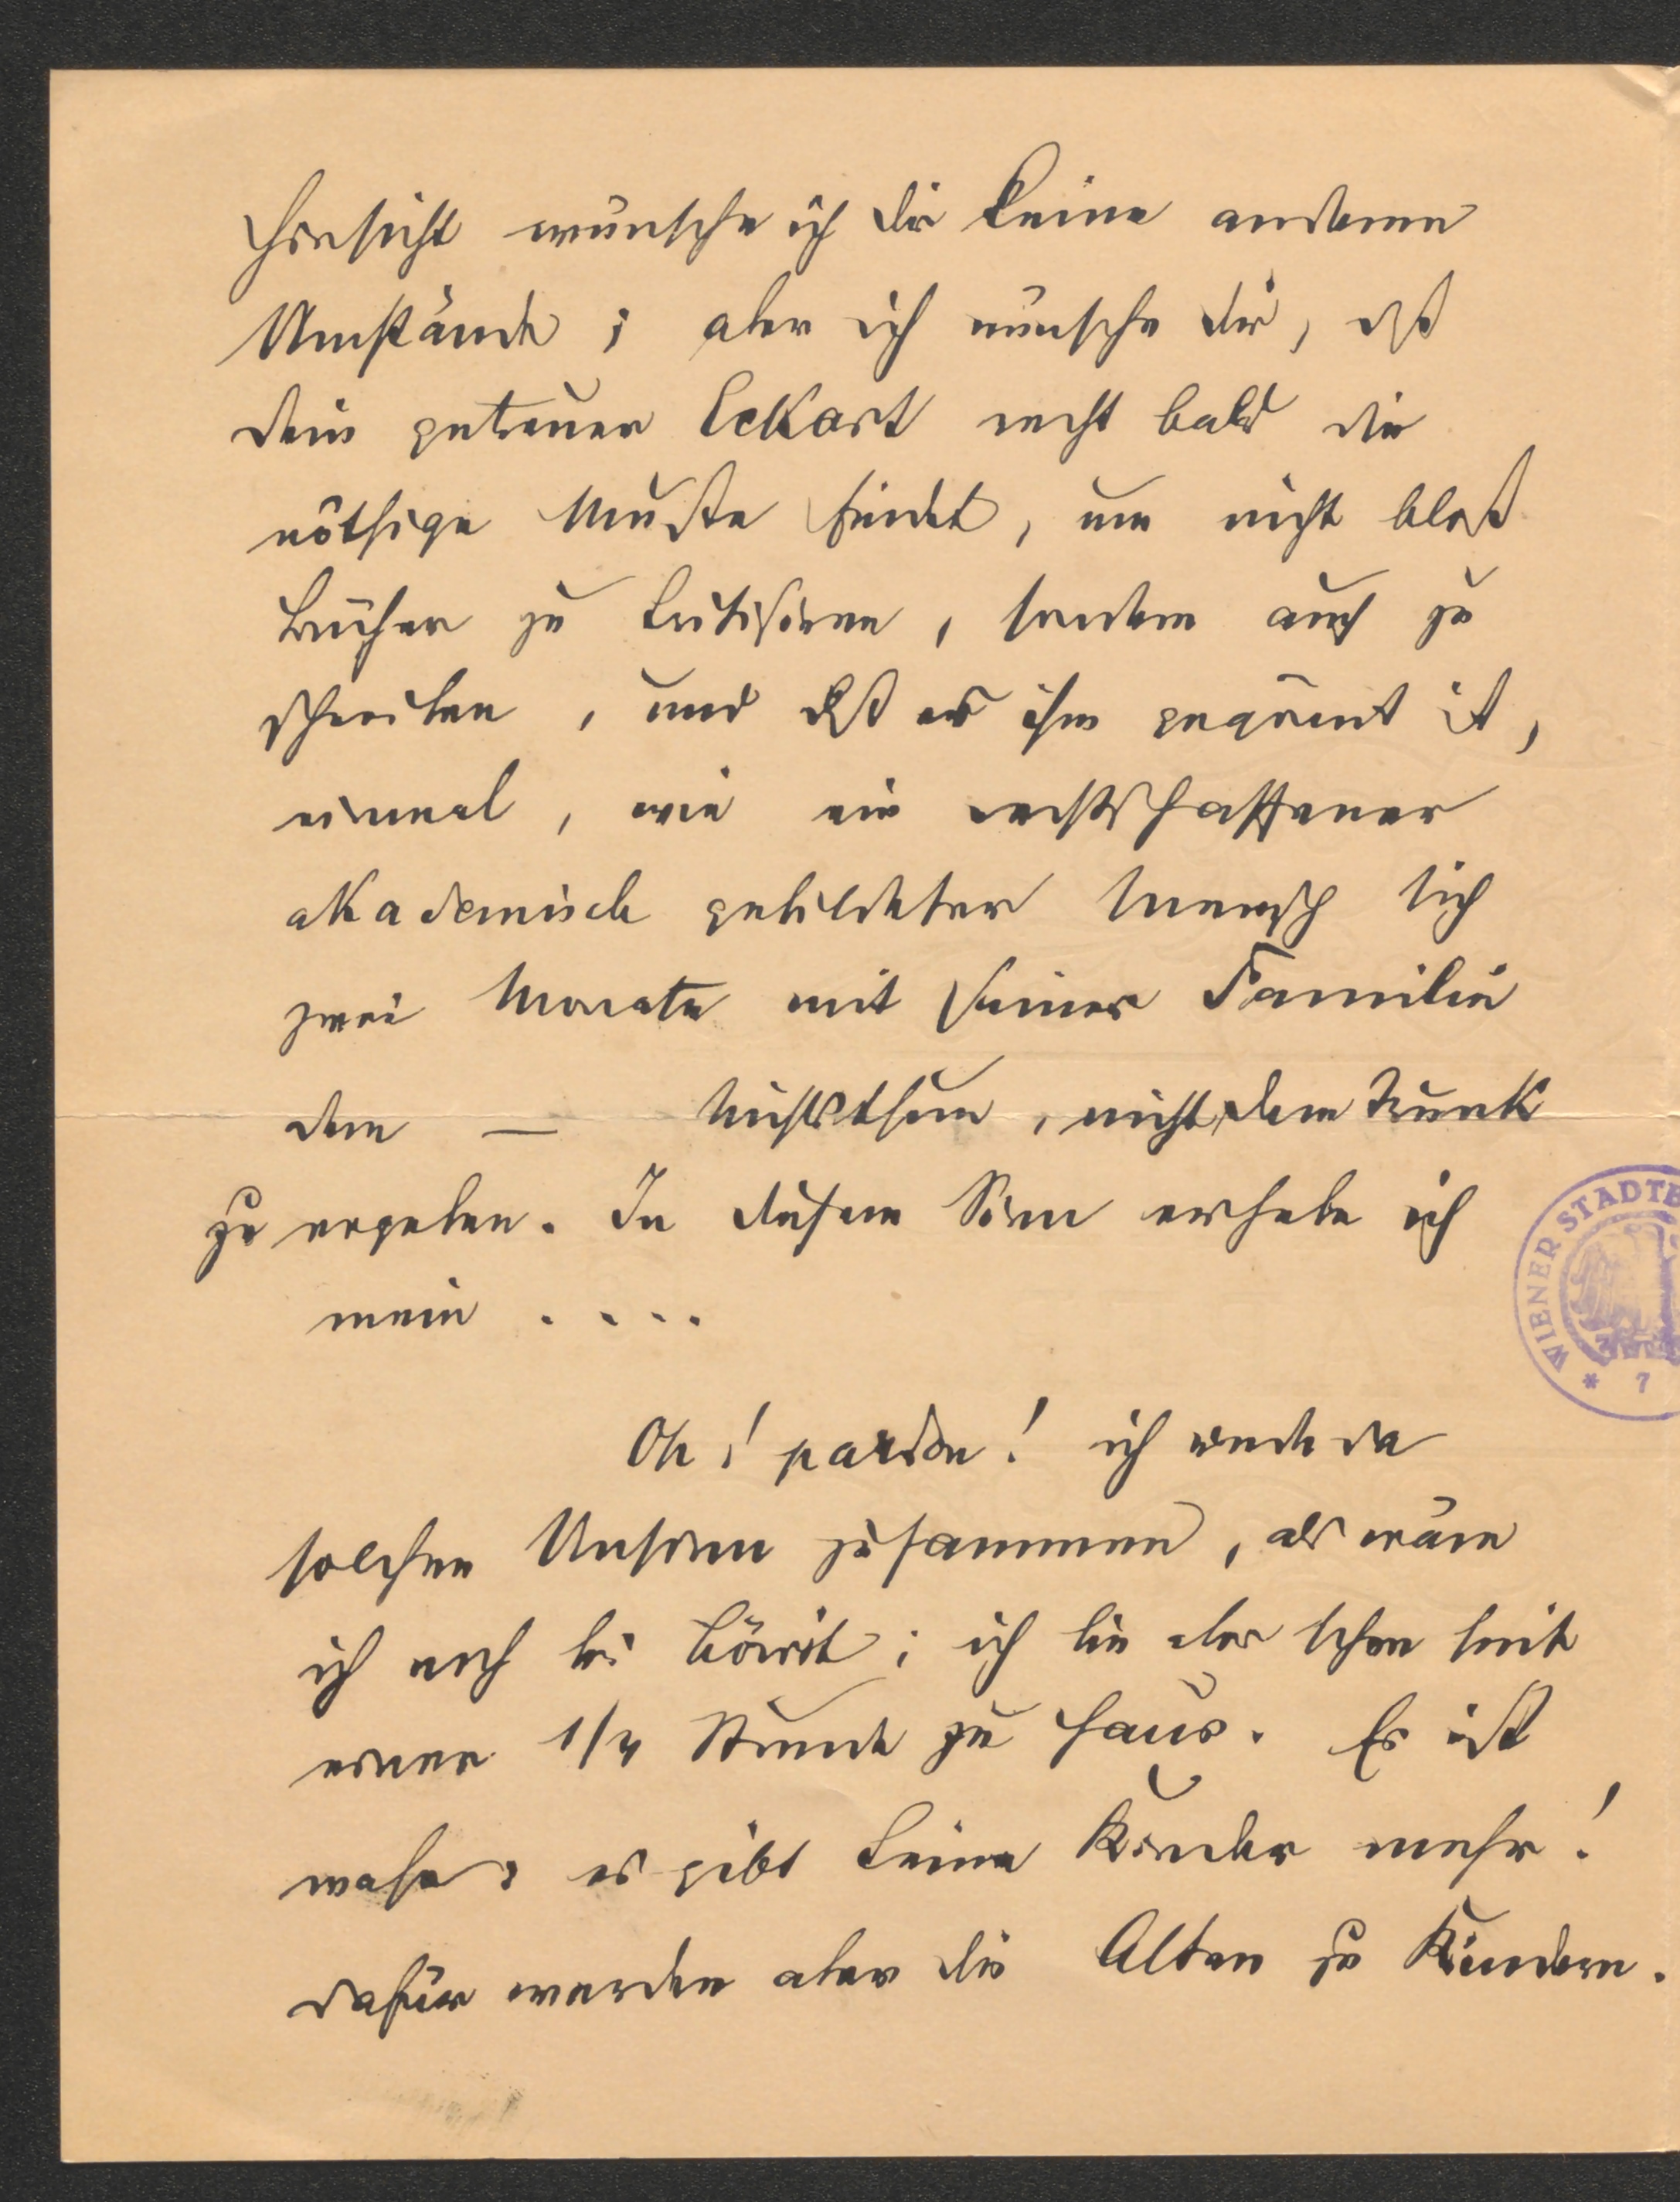 Hinsicht wünsche ich dir keine anderen
Umstände; aber ich wünsche dir, dß
dein getreuer Eckart recht bald die
nöthige Muße findet, um nicht bloß
Bücher zu kritisiren, sondern auch zu
schreiben, und dß es ihm gegönnt ist,
einmal, wie ein rechtschaffener
akademisch gebildeter Mensch sich
zwei Monate mit seiner Familie
dem — Nichtsthun, nicht dem Trunk
zu ergeben. In diesem Sinn erhebe ich
mein ....
Oh! pardon! ich rede da
solchen Unsinn zusammen, als wäre
ich noch bei ; ich bin aber schon seit
einer 1/4 Stunde zu Haus. Es ist
wahr: es gibt keine Kinder mehr!
dafür werden aber die Alten zu Kindern.
WIENER STADTB
* 7